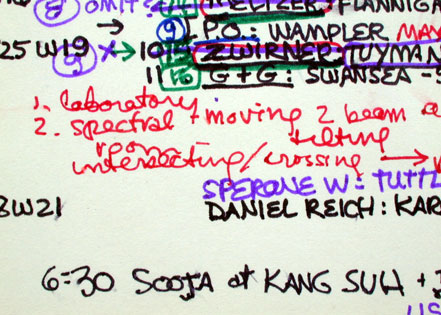 8 OMIT MELTZER: FLANNIGA
9 P.O.: WAMPLER MAY
25 W19 X → 10 ZWIRNER TUYMAN
11 G + G: SWANSEA - S
1. laboratory
2. spectral + moving 2 beam
tilting
intersecting/crossing →
SPERONE W: TUTTL
3W21 DANIEL REICH: KAR
6:30 SOOJA at KANG SUH +
US